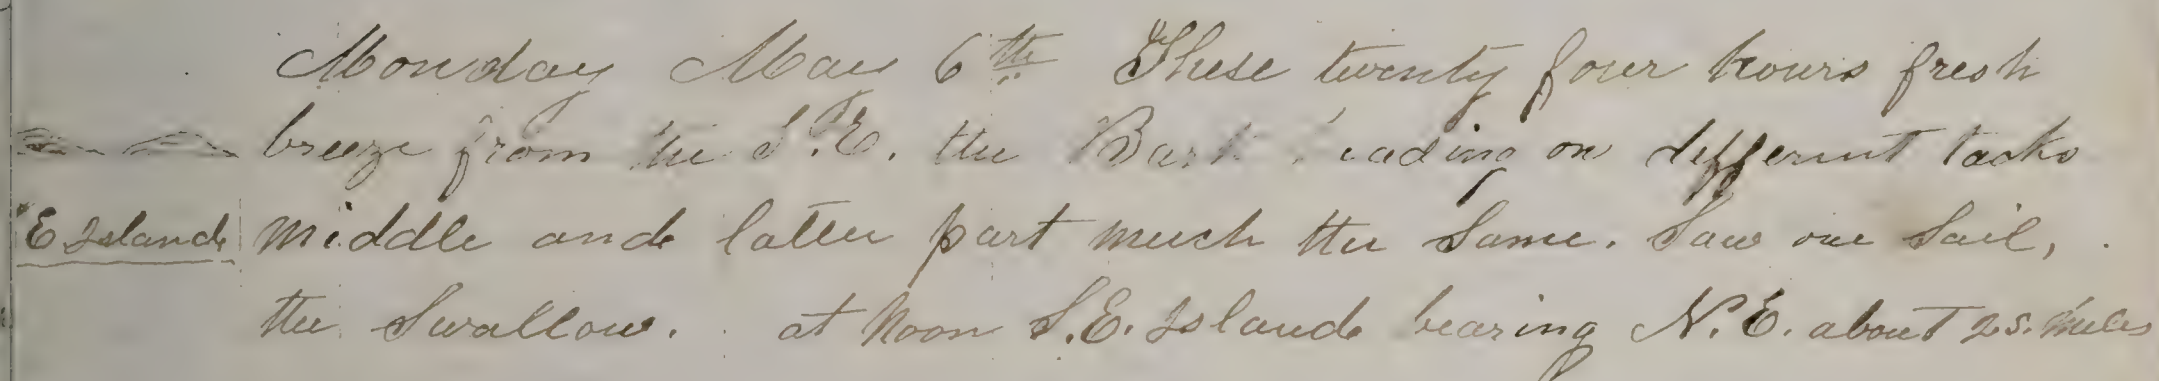 Monday May 6th These twenty four hours fresh
breeze from the S.E. the Bark heading on different tacks
E Island middle and latter part much the Same. Saw one Sail,
the Swallow. at Noon S.E. Island bearing N.E. about 25. miles